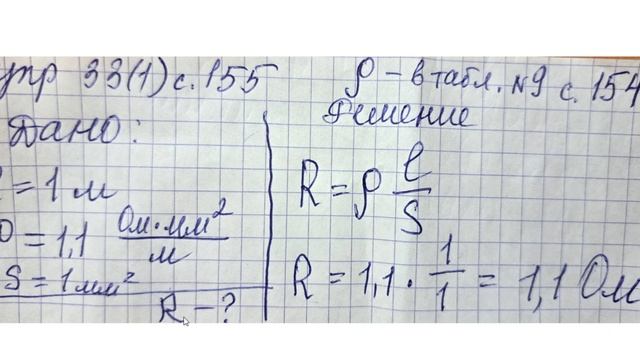 упр 33(1) с. 155
ρ – в табл. №9 с. 154
Дано:
l = 1 м
ρ = 1,1 Ом·мм²/м
S = 1 мм²
R – ?
Решение
R = ρ l/S
R = 1,1 · 1/1 = 1,1 Ом